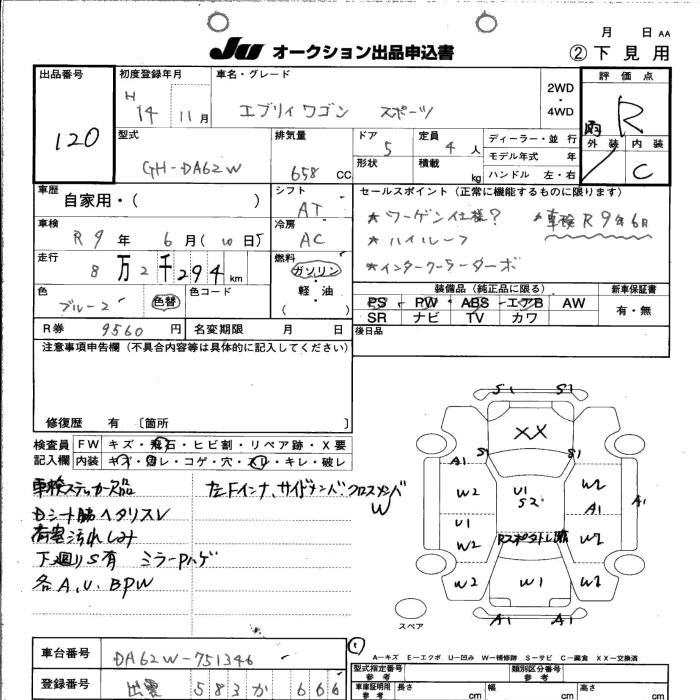 月 日 AA
JU オークション出品申込書 ②下見用
出品番号 初度登録年月 車名・グレード 評価点
120
H 14 11月
エブリイワゴン スポーツ
2WD
・
4WD
R
外装 内装
C
型式 排気量 ドア 定員 ディーラー・並行
GH-DA62W 658 CC 5 4人 モデル年式 年
形状 積載 kg ハンドル 左・右
車歴 シフト セールスポイント(正常に機能するものに限ります)
自家用・( ) AT
★ワーゲン仕様? ★車検R9年6月
車検 冷房
R9年 6月( 日) AC
★ハイルーフ
走行 燃料
8万2千294km ガソリン
・
軽・油
( )
★インタークーラーターボ
色 色コード
ブルー2 色替
装備品(純正品に限る) 新車保証書
PS PW ABS エアB AW 有・無
SR ナビ TV カワ
R券 9560円 名変期限 月 日 後日品
注意事項申告欄(不具合内容等は具体的に記入してください)
修復歴 有 〔箇所 〕
検査員 FW キズ・飛石・ヒビ割・リペア跡・X要
記入欄 内装 キズ・汚レ・コゲ・穴・スレ・キレ・破レ
車検ステッカー欠品 左Fインナ、サイドメンバ、クロスメンバ
W
Dシート脇ヘタリスレ
荷室汚れしみ
下廻りS有 ミラーPハゲ
各A.U.BPW
S1 S1
XX
S1 S1
A1
W2 U1 S2 W2
A1 A1
U1
W2 W2
W2 W1 W2
A1 A1
スペア
A-キズ E-エクボ U-凹み W-補修跡 S-サビ C-腐食 XX-交換済
車台番号 DA62W-751346
型式指定番号 類別区分番号
参考 参考
登録番号 出雲 583 か 666
車庫証明用 長さ 幅 高さ
参考 cm cm cm